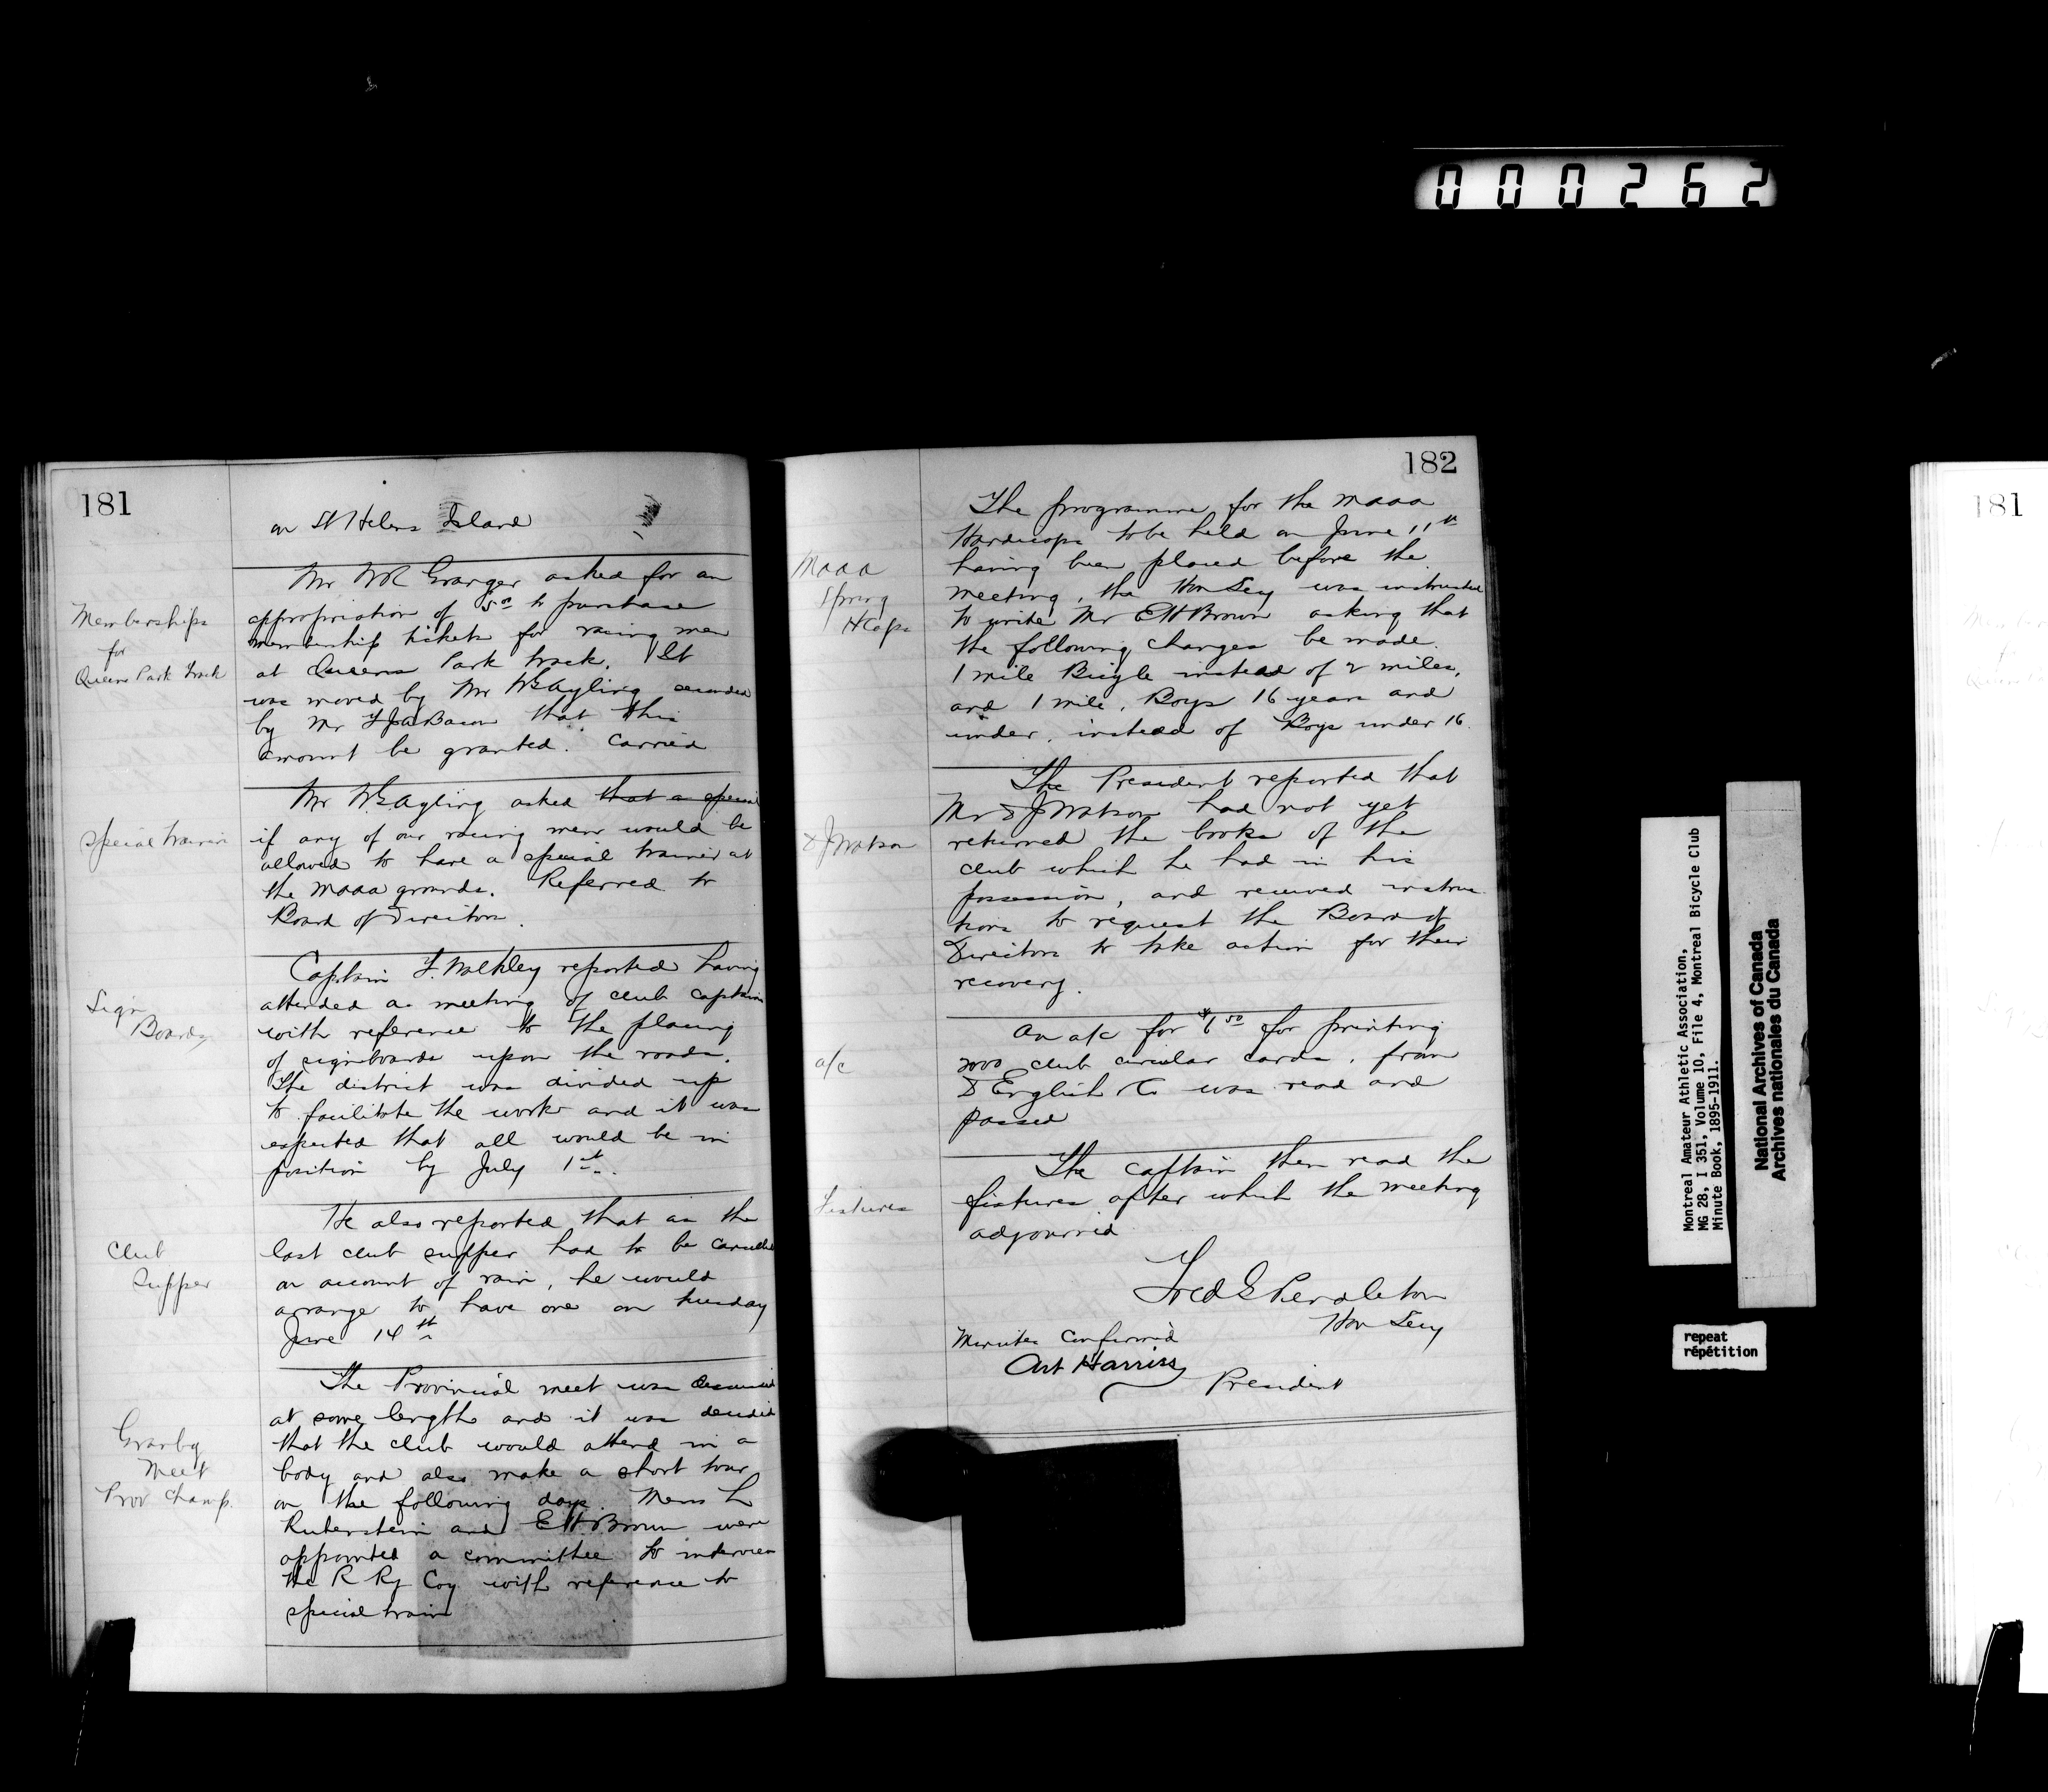 000262
181
on St Helens Island
Mr W R Granger asked for an
Memberships
for
Queens Park Track
appropriation of 5.00 to purchase
membership tickets for racing men
at Queens Park track. It
was moved by Mr W Ayling seconded
by Mr F J A Bacon that this
amount be granted. Carried
Special trainer
Mr W Ayling asked that a special
if any of our racing men would be
allowed to have a special trainer at
the MAAA grounds. Referred to
Board of Directors.
Sign
Boards
Captain F. Walkley reported having
attended a meeting of club captains
with reference to the placing
of signboards upon the roads.
The district was divided up
to facilitate the work and it was
expected that all would be in
position by July 1st.
Club
Supper
He also reported that as the
last club supper had to be cancelled
on account of rain, he would
arrange to have one on tuesday
June 14th
Granby
Meet
Prov Champ.
The Provincial meet was discussed
at some length and it was decided
that the club would attend in a
body and also make a short tour
on the following days. Messrs L
Rubenstein and E H Brown were
appointed a committee to interview
the R Ry Coy with reference to
special train
182
MAAA
Spring
H'Caps
The programme for the MAAA
Handicaps to be held on June 11th
having been placed before the
meeting, the Hon Secy was instructed
to write Mr E H Brown asking that
the following changes be made.
1 mile Bicycle instead of 2 miles,
and 1 mile, Boys 16 years and
under, instead of Boys under 16.
D J Watson
The President reported that
Mr D J Watson had not yet
returned the books of the
club which he had in his
possession, and received instruc
tions to request the Board of
Directors to take action for their
recovery.
a/c
An a/c for $6 50 for printing
2000 club circular cards, from
D English & Co was read and
passed
Fixtures
The Captain then read the
fixtures after which the meeting
adjourned
Fred G Pendleton
Hon Secy
Minutes Confirmed
Art Harriss
President
Montreal Amateur Athletic Association,
MG 28, I 351, Volume 10, File 4, Montreal Bicycle Club
Minute Book, 1895-1911.
National Archives of Canada
Archives nationales du Canada
repeat
répétition
181